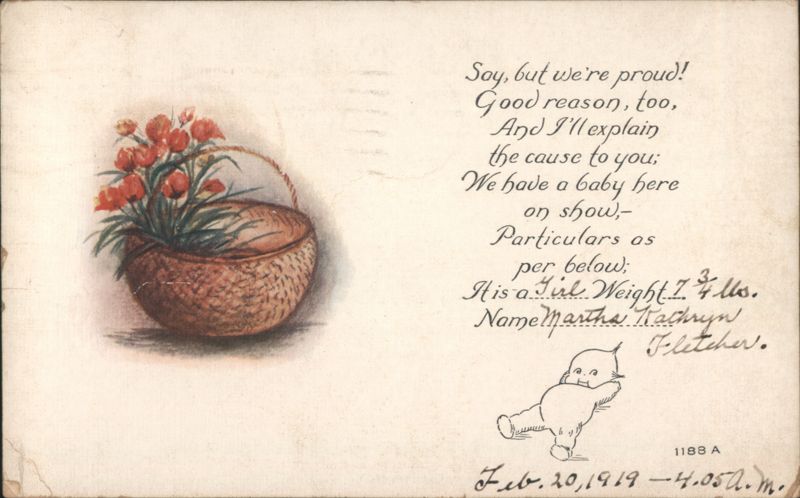 Say, but we're proud!
Good reason, too,
And I'll explain
the cause to you;
We have a baby here
on show,—
Particulars as
per below;
It is a Girl Weight 7 3/4 lbs.
Name Martha Kathryn
Fletcher.
1188 A
Feb. 20, 1919 — 4.05 A.M.